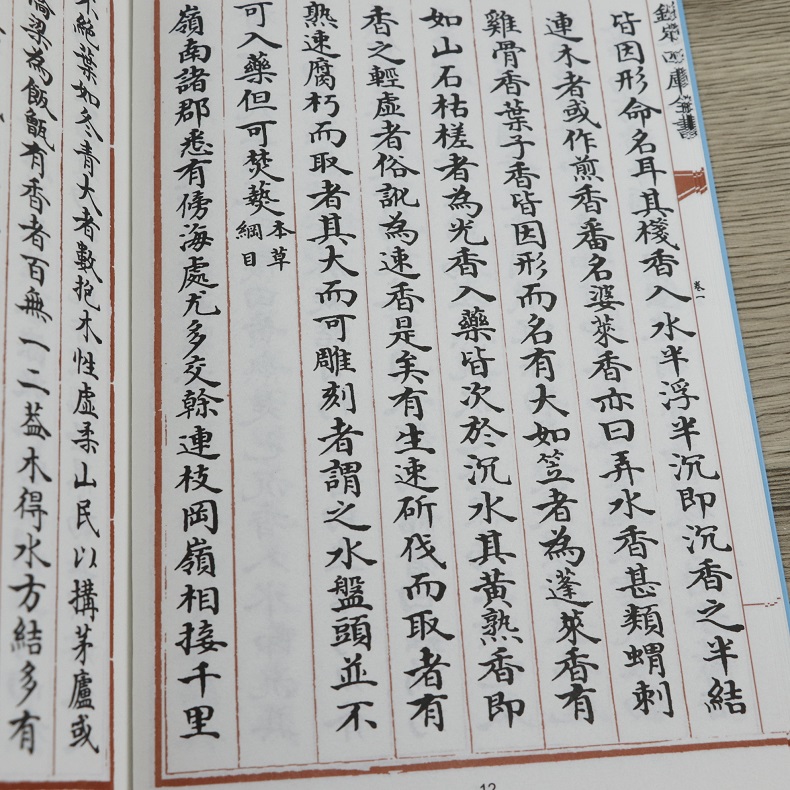 欽定四庫全書
卷一
皆因形命名耳其棧香入水半浮半沉即沉香之半結
連木者或作煎香番名婆萊香亦曰弄水香甚類蝟刺
雞骨香葉子香皆因形而名有大如笠者為蓬萊香有
如山石枯槎者為光香入藥皆次於沉水其黃熟香即
香之輕虛者俗訛為速香是矣有生速斫伐而取者有
熟速腐朽而取者其大而可雕刻者謂之水盤頭並不
可入藥但可焚爇本草
綱目
嶺南諸郡悉有傍海處尤多交榦連枝岡嶺相接千里
不絕葉如冬青大者數抱木性虛柔山民以搆茅廬或
橋梁為飯甑有香者百無一二葢木得水方結多有
12